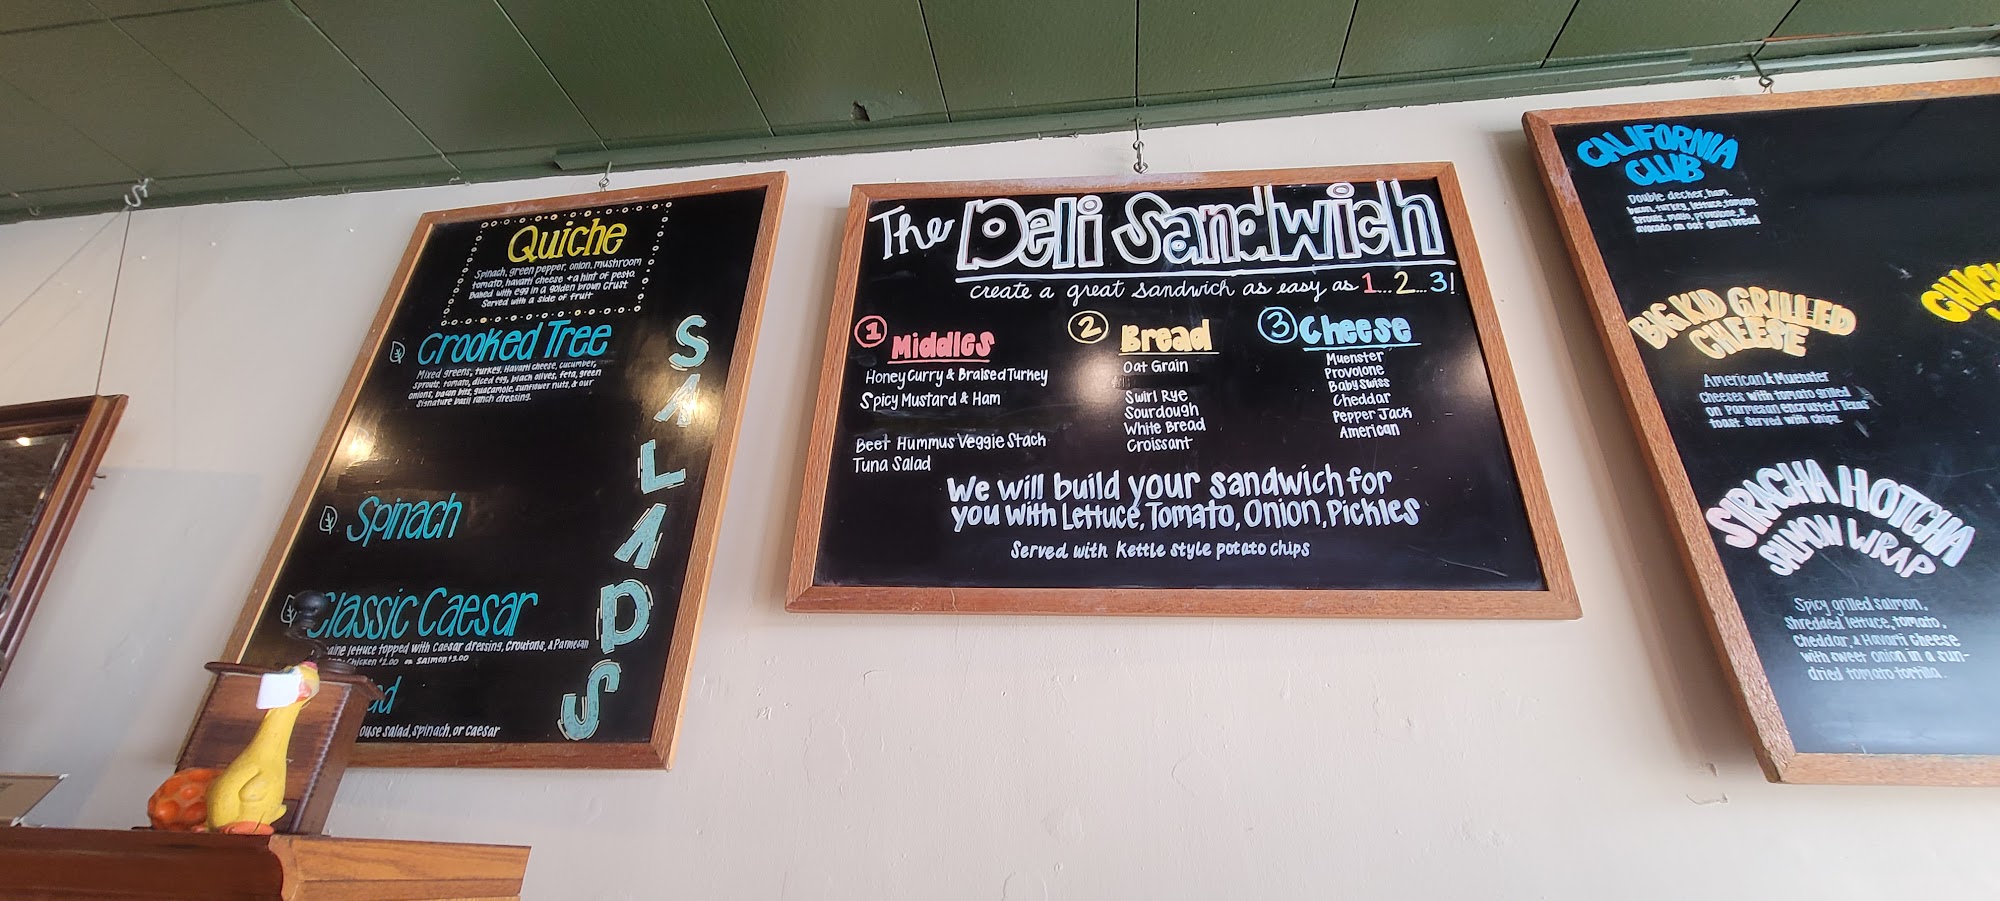 Quiche
Spinach, green pepper, onion, mushroom
tomato, havarti cheese + a hint of pesto.
Baked with egg in a golden brown crust
Served with a side of fruit
Crooked Tree
Mixed greens, turkey, Havarti cheese, cucumber,
sprouts, tomato, diced egg, black olives, feta, green
onions, bacon bits, guacamole, sunflower nuts, & our
signature basil ranch dressing.
Spinach
Classic Caesar
lettuce topped with Caesar dressing, Croutons, & Parmesan
Chicken $2.00 or Salmon $3.00
salad, spinach, or caesar
SALADS
The Deli Sandwich
create a great sandwich as easy as 1...2...3!
1 Middles
Honey Curry & Braised Turkey
Spicy Mustard & Ham
Beet Hummus Veggie Stack
Tuna Salad
2 Bread
Oat Grain
Swirl Rye
Sourdough
White Bread
Croissant
3 Cheese
Muenster
Provolone
Baby Swiss
Cheddar
Pepper Jack
American
We will build your sandwich for
you with Lettuce, Tomato, Onion, Pickles
Served with Kettle style potato chips
CALIFORNIA
CLUB
Double decker, ham,
bacon, turkey, lettuce, tomato,
sprouts, mayo, provolone, &
avocado on oat grain bread
BIG KID GRILLED
CHEESE
American & Muenster
Cheeses with tomato grilled
on Parmesan encrusted Texas
toast. Served with chips
SIRACHA HOTCHA
SALMON WRAP
Spicy grilled salmon,
shredded lettuce, tomato,
Cheddar, & Havarti cheese
with sweet onion in a sun-
dried tomato tortilla.